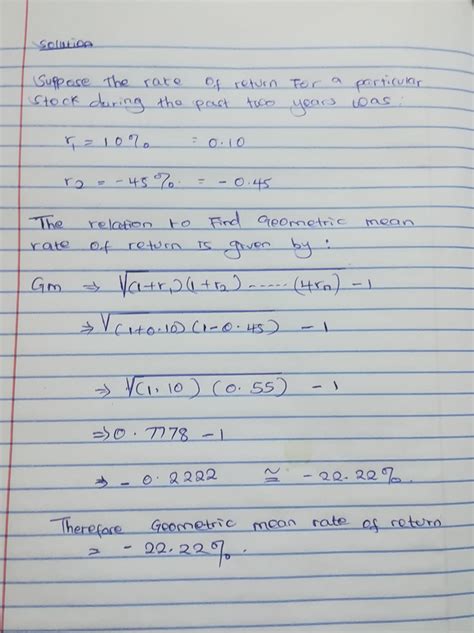 Solution
Suppose the rate of return for a particular
stock during the past two years was:
r₁ = 10% = 0.10
r2 = -45% = - 0.45
The relation to Find Geometric mean
rate of return is given by :
Gm ⇒ √(1+r₁)(1+r2) ----- (4rn) - 1
⇒ √(1+0.10)(1-0.45) - 1
⇒ √(1.10) (0.55) - 1
⇒ 0.7778 - 1
→ - 0.2222 ≅ - 22.22%.
Therefore Geometric mean rate of return
= - 22.22%.